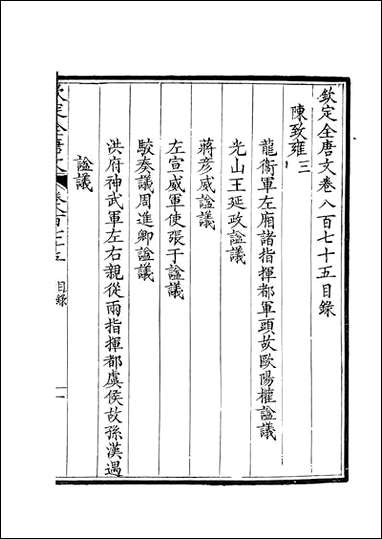 欽定全唐文卷八百七十五目錄
陳致雍三
龍衞軍左廂諸指揮都軍頭故歐陽權諡議
光山王延政諡議
蔣彥威諡議
左宣威軍使張于諡議
駮奏議周進卿諡議
洪府神武軍左右親從兩指揮都虞侯故孫漢遇
諡議
目錄
一